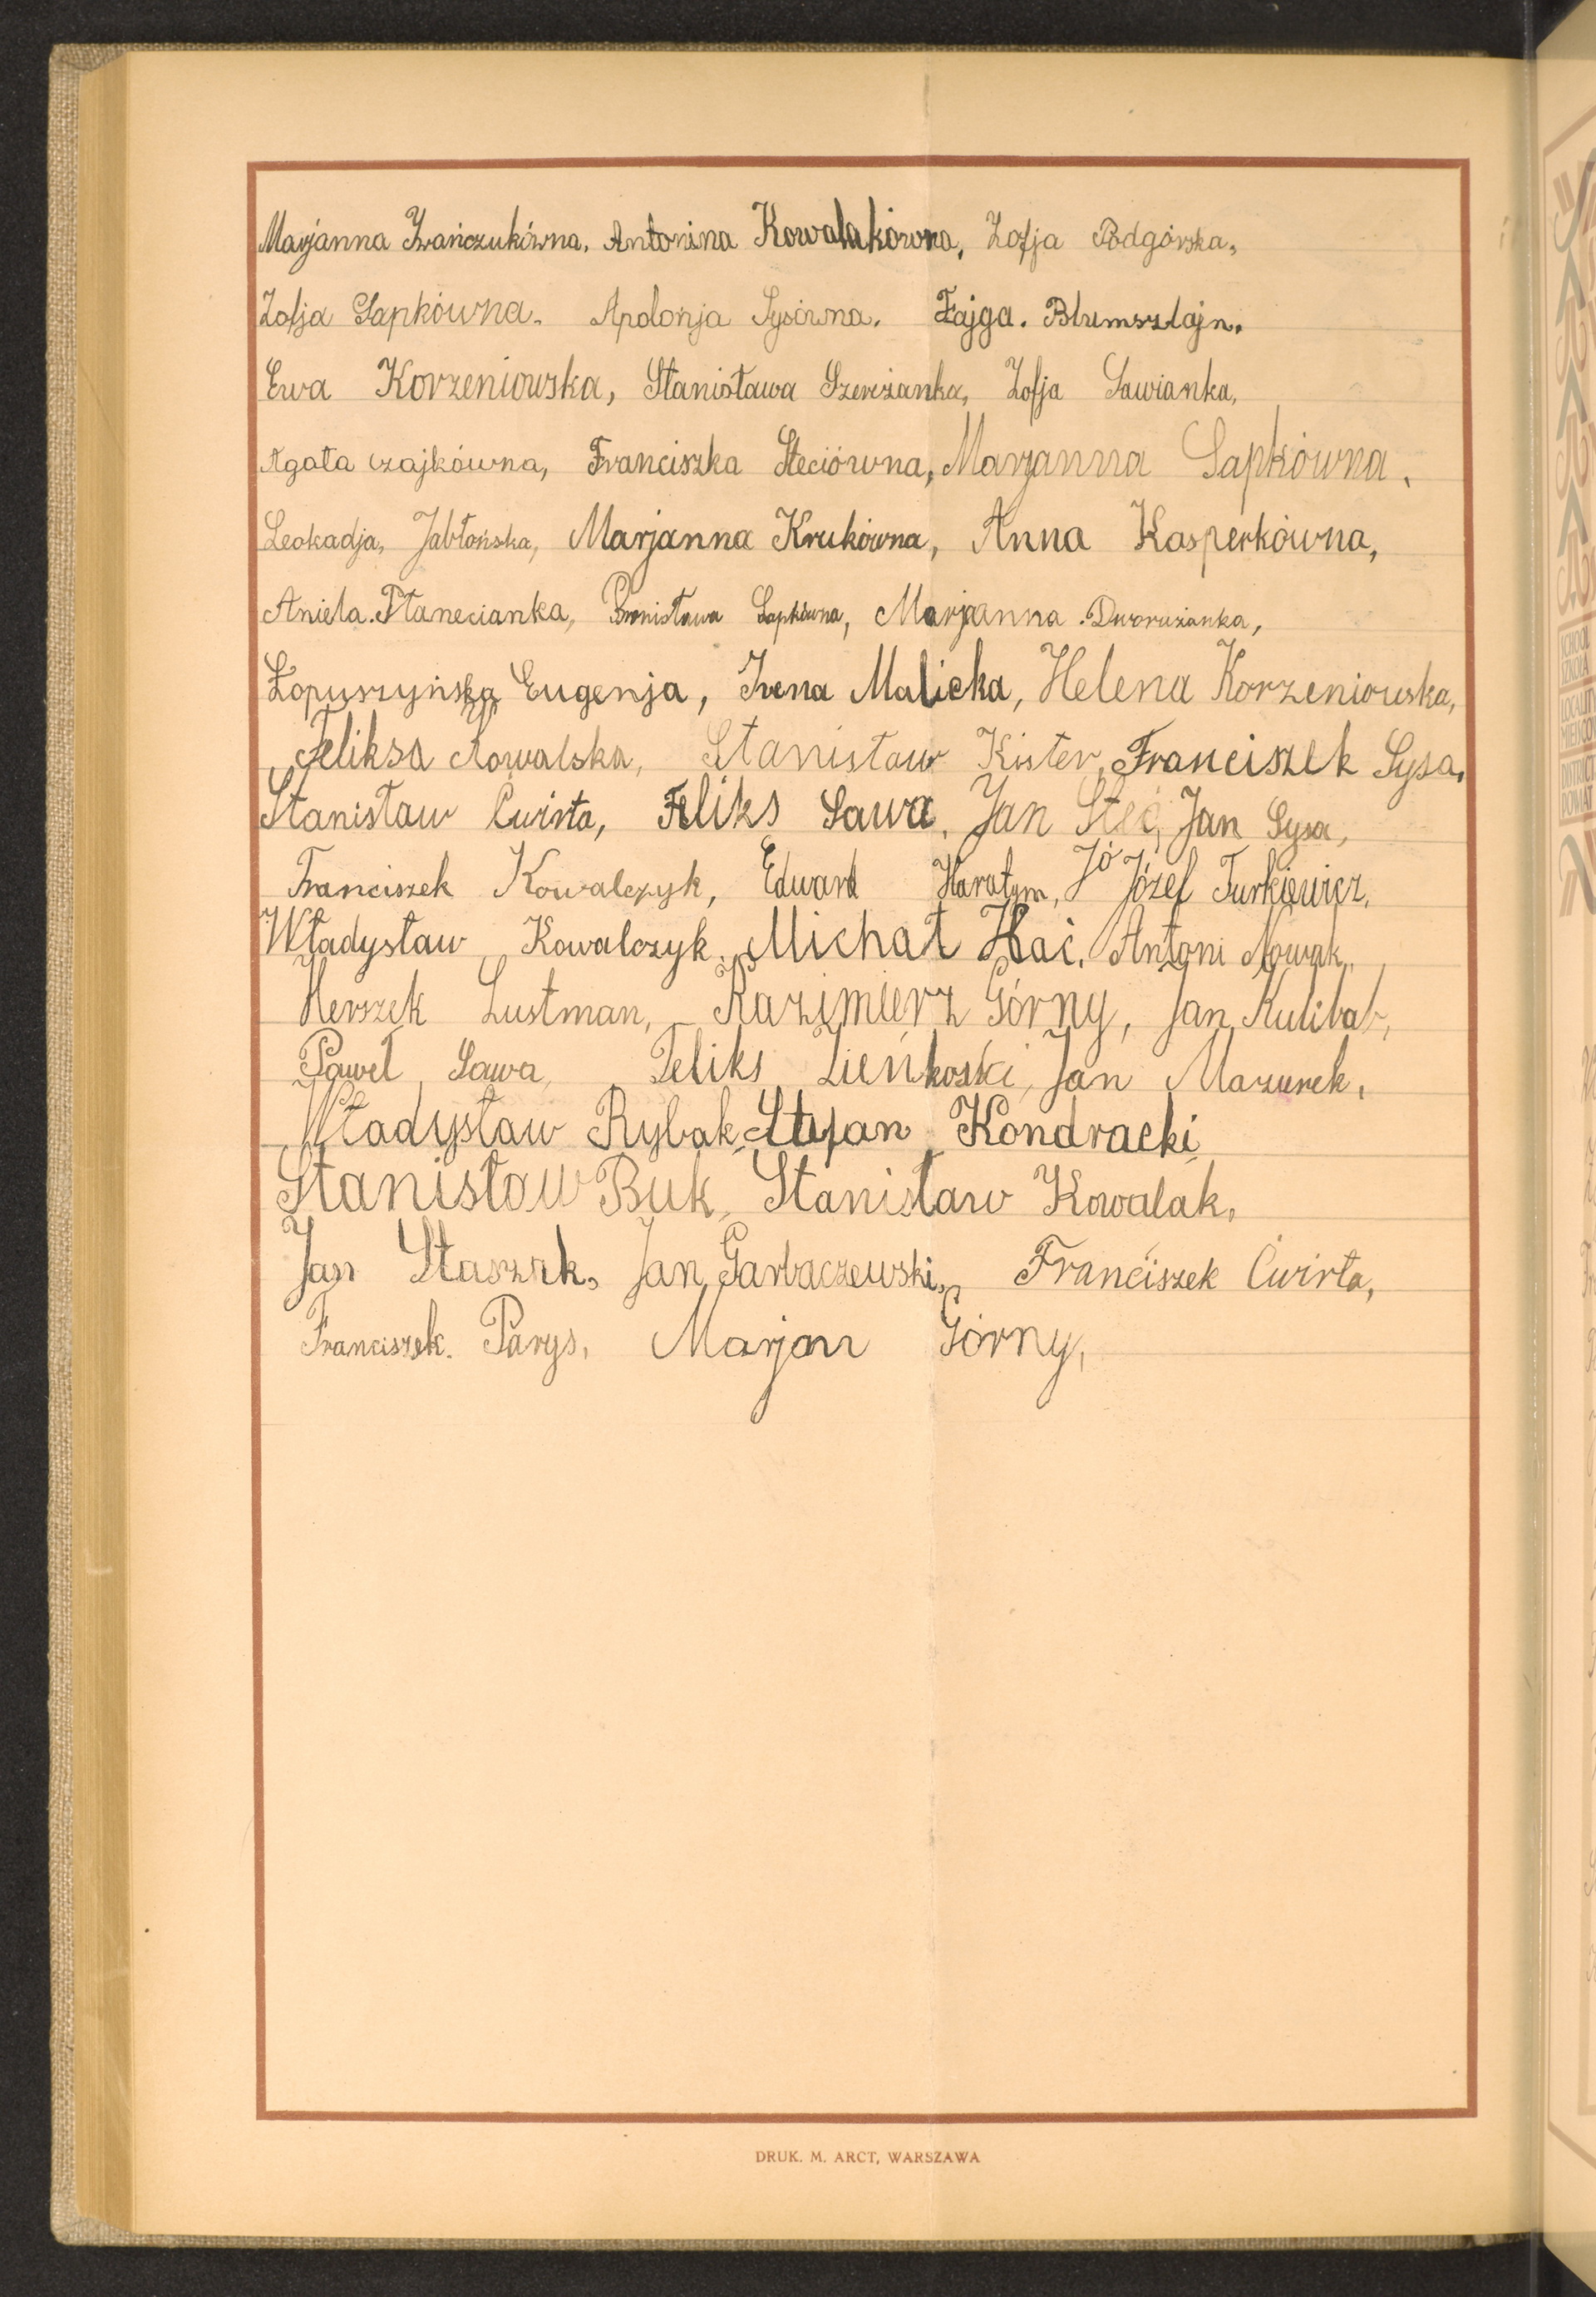 Marjanna Iwańczukówna, Antonina Kowalakówna, Zofja Podgórska,
Zofja Sapkówna. Apolonja Sysówna. Fajga. Blumsztajn.
Ewa Korzeniowska, Stanisława Szewżanka, Zofja Sawianka,
Agata czajkówna, Franciszka Steciówna, Marjanna Sapkówna,
Leokadja, Jabłońska, Marjanna Krukówna, Anna Kasperkówna,
Aniela. Płanecianka, Bronisława Sapkówna, Marjanna. Dworużanka,
Łopuszyńska Eugenja, Irena Malicka, Helena Korzeniowska,
Feliksa Kowalska, Stanisław Kister, Franciszek Sysa,
Stanisław Ćwirta, Feliks Sawa, Jan Steć, Jan Sysa,
Franciszek Kowalczyk, Edward Haratym, Jó Józef Turkiewicz,
Władysław Kowalczyk, Michał Hać, Antoni Nowak,
Herszek Lustman, Kazimierz Górny, Jan Kulibab,
Paweł Sawa, Feliks Zieńkoski, Jan Mazurek,
Władysław Rybak, Stefan Kondracki,
Stanisław Buk, Stanisław Kowalak,
Jan Staszek, Jan Garbaczewski, Franciszek Ćwirta,
Franciszek. Parys, Marjan Górny,
DRUK. M. ARCT, WARSZAWA